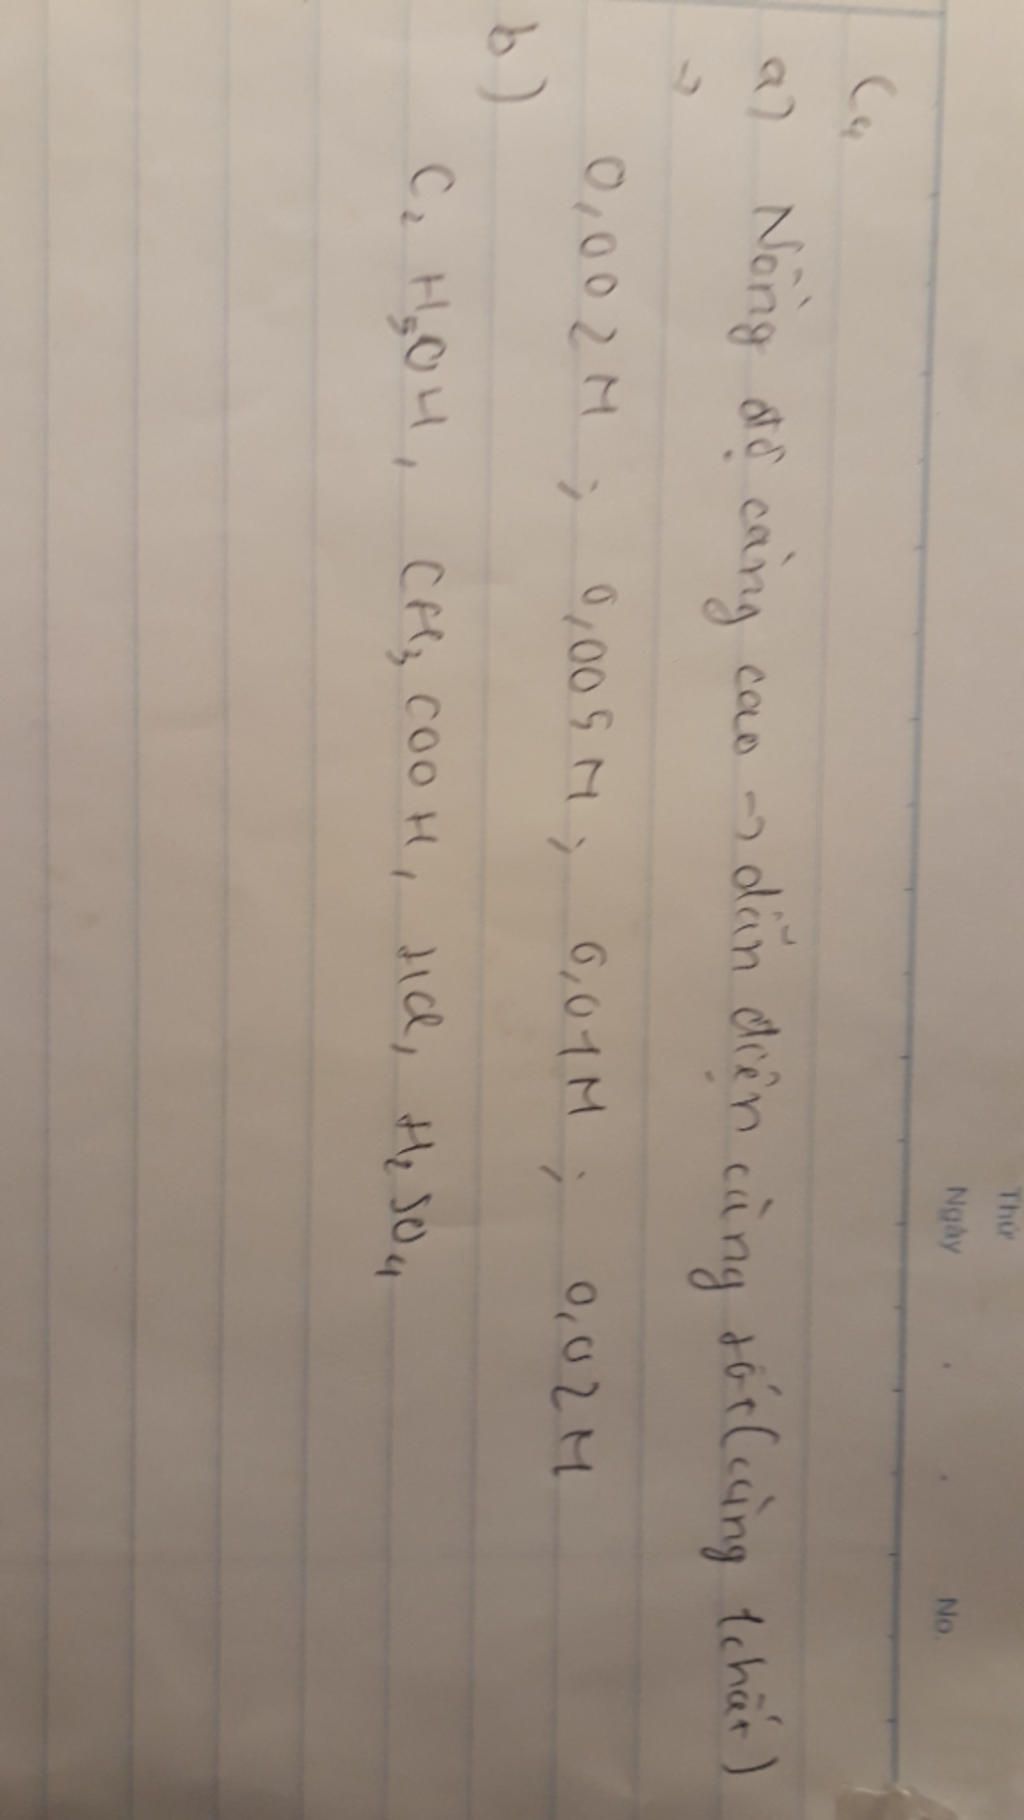 Thứ
Ngày . . No.
C4
a) Nồng độ càng cao → dẫn điện càng tốt (cùng 1 chất)
→
0,002M ; 0,005M ; 0,01M ; 0,02M
b)
C2H5OH, CH3COOH, HCl, H2SO4